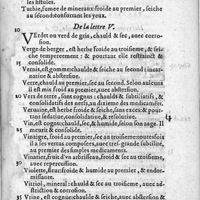 les fistules.
Tuthie, fumee de mineraux: froide au premier, seiche
au second: confortant les yeux.
De la lettre V.
VErdet ou verd de gris, chauld & sec, auec corro-
sion.
Verge de berger, est herbe froide au troisieme, & sei-
che temperement: & pourtant elle restrainct &
consolide.
Vernis, est gomme chaulde & seiche au second: incar-
natiue & abstersiue.
Verre, chauld au premier, sec au second. Selon aucuns
il est mis froid au premier: & est abstersif.
Vers de terre, sont eagus & subtils & abstersifs, con-
solidatifs des nerfs coupez, & conioinctifs.
Veruaine, est herbe seiche, constrictiue, & froide, con-
Vin, est cogneu: chauld, sec, & humide, selon son aage. Il
meurit & consolide.
Vinaigre, froid au premier, sec au troisieme: toutesfois
il a les vertus composees, auec tres-grande subilité
au premier des simples medicaments.
Vinatier, fruit d'vn arbrisseau, froid & sec au troisieme,
auec repercussion.
Violette, fleur: froide & humide au premier, & endor-
missante.
Vitriol, mineral: chauld & sec au troisieme, auec ad-
striction & corrosion.
Vrine, est cogneue: chaulde & seiche, auec abstersion &